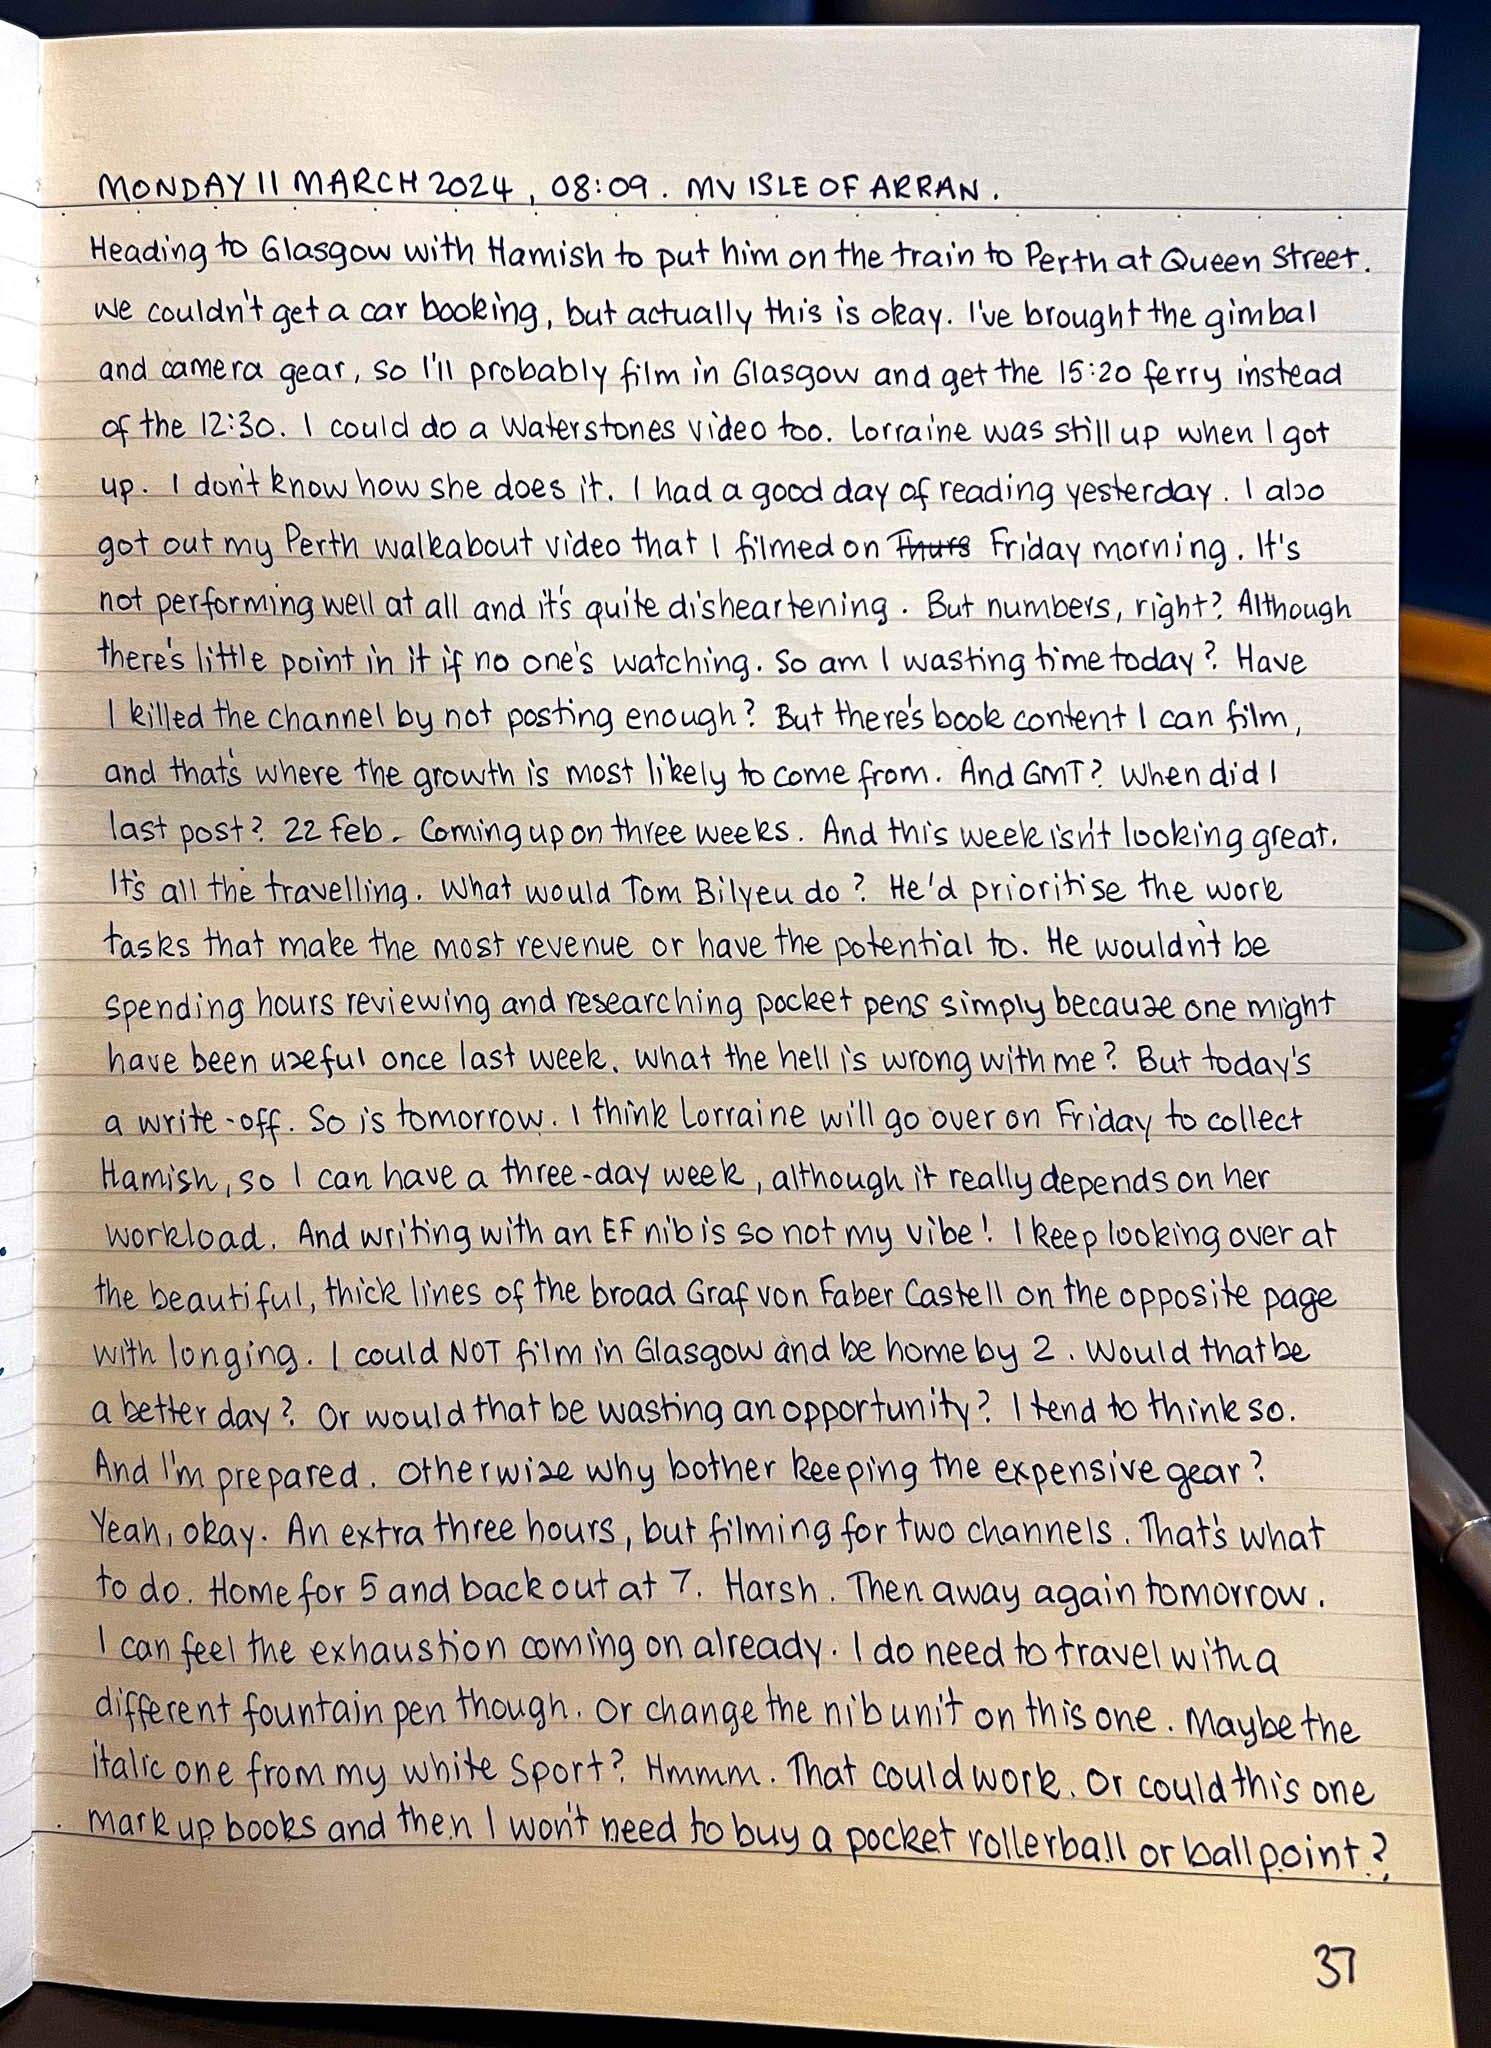 MONDAY 11 MARCH 2024, 08:09. MV ISLE OF ARRAN.
Heading to Glasgow with Hamish to put him on the train to Perth at Queen Street.
We couldn't get a car booking, but actually this is okay. I've brought the gimbal
and camera gear, so I'll probably film in Glasgow and get the 15:20 ferry instead
of the 12:30. I could do a Waterstones video too. Lorraine was still up when I got
up. I don't know how she does it. I had a good day of reading yesterday. I also
got out my Perth walkabout video that I filmed on ~~Thurs~~ Friday morning. It's
not performing well at all and it's quite disheartening. But numbers, right? Although
there's little point in it if no one's watching. So am I wasting time today? Have
I killed the channel by not posting enough? But there's book content I can film,
and that's where the growth is most likely to come from. And GMT? When did I
last post? 22 Feb. Coming up on three weeks. And this week isn't looking great.
It's all the travelling. What would Tom Bilyeu do? He'd prioritise the work
tasks that make the most revenue or have the potential to. He wouldn't be
spending hours reviewing and researching pocket pens simply because one might
have been useful once last week. What the hell is wrong with me? But today's
a write-off. So is tomorrow. I think Lorraine will go over on Friday to collect
Hamish, so I can have a three-day week, although it really depends on her
workload. And writing with an EF nib is so not my vibe! I keep looking over at
the beautiful, thick lines of the broad Graf von Faber Castell on the opposite page
with longing. I could NOT film in Glasgow and be home by 2. Would that be
a better day? Or would that be wasting an opportunity? I tend to think so.
And I'm prepared. Otherwise why bother keeping the expensive gear?
Yeah, okay. An extra three hours, but filming for two channels. That's what
to do. Home for 5 and back out at 7. Harsh. Then away again tomorrow.
I can feel the exhaustion coming on already. I do need to travel with a
different fountain pen though. Or change the nib unit on this one. Maybe the
italic one from my white Sport? Hmmm. That could work. Or could this one
mark up books and then I won't need to buy a pocket rollerball or ballpoint?
37